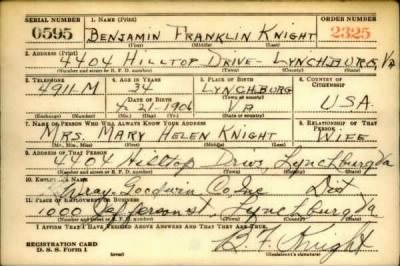 SERIAL NUMBER 1. NAME (Print) ORDER NUMBER
0595 BENJAMIN FRANKLIN KNIGHT 2325
(First) (Middle) (Last)
2. ADDRESS (Print)
4404 HILLTOP DRIVE - LYNCHBURG, VA
(Number and street or R. F. D. number) (Town) (County) (State)
3. TELEPHONE 4. AGE IN YEARS 5. PLACE OF BIRTH 6. COUNTRY OF CITIZENSHIP
4911-M 34 LYNCHBURG
DATE OF BIRTH (Town or county)
4-21-1906 VA U.S.A.
(Exchange) (Number) (Mo.) (Day) (Yr.) (State or country)
7. NAME OF PERSON WHO WILL ALWAYS KNOW YOUR ADDRESS 8. RELATIONSHIP OF THAT PERSON
MRS. MARY HELEN KNIGHT WIFE
(Mr., Mrs., Miss) (First) (Middle) (Last)
9. ADDRESS OF THAT PERSON
4404 Hilltop Drive, Lynchburg Va
(Number and street or R. F. D. number) (Town) (County) (State)
10. EMPLOYER'S NAME
Goodwin Co Inc
11. PLACE OF EMPLOYMENT OR BUSINESS
1000 Jefferson st. Lynchburg Va
(Number and street or R. F. D. number) (Town) (County) (State)
I AFFIRM THAT I HAVE VERIFIED ABOVE ANSWERS AND THAT THEY ARE TRUE.
REGISTRATION CARD
D. S. S. Form 1
B. F. Knight
(Registrant's signature)